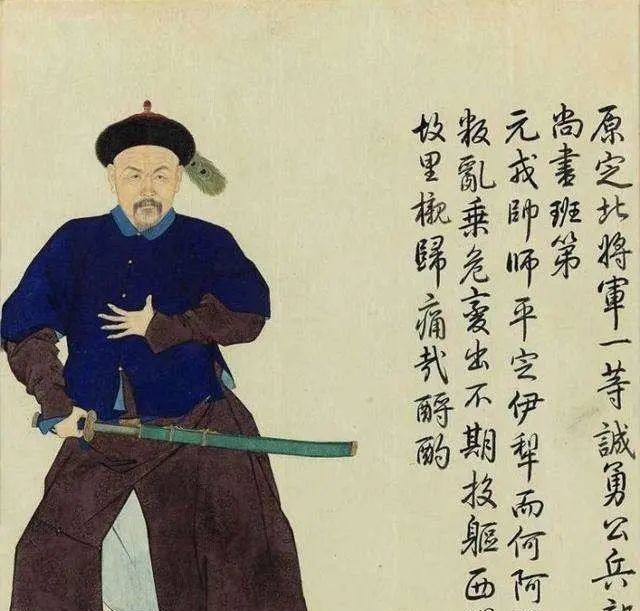 原定北將軍一等誠勇公兵
尚書班第
元戎帥師平定伊犁而何阿
叛亂乘危變出不期投軀西
故里櫬歸痛哉酹酌